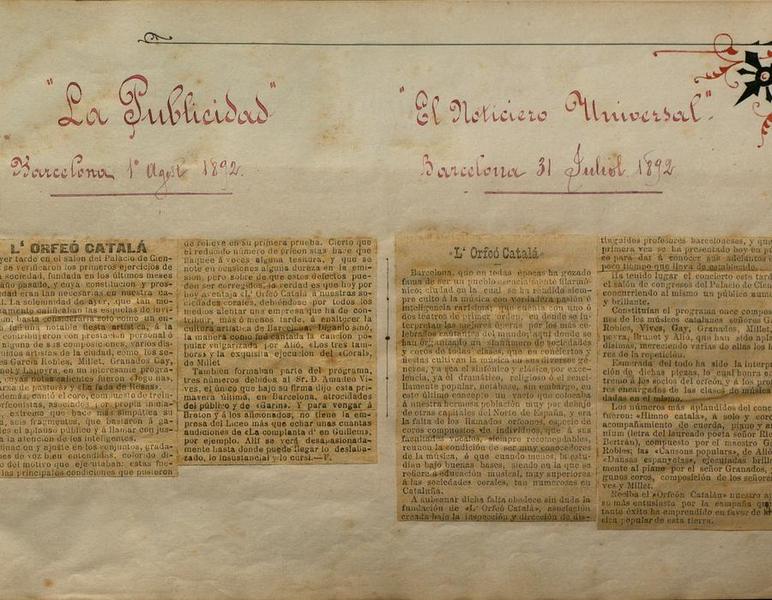 "La Publicidad"
Barcelona 1º Agost 1892.
L' ORFEÓ CATALÁ
yer tarde en el salón del Palacio de Cien-
se verificaron los primeros ejercicios de
a sociedad, fundada en los últimos meses
año pasado, y cuya constitución y pros-
idad eran tan necesarias en nuestra
la solemnidad de ayer, que tan
contribuyeron con prestar el personal ó
alguna de sus composiciones, varios de
artistas de la ciudad, como los se-
es García Robles, Millet, Granados Gay,
en un interesante progra-
cuyas notas salientes fueron
además, el coro, con
orfeonistas,
extremo que hace más simpática su
seis fragmentos, que bastaron á ga-
les el aplauso público y á llamar con jus-
la atención de los inteligentes.
inación y ajuste en los conjuntos, grada-
es de voz bien entendidas, colorido di-
del motivo que ejecutaban: estas fue-
principales condiciones que pusieron
de relieve en su primera prueba. Cierto que
el reducido número de orfeonistas hace que
flaquee á voces alguna tesura, y que se
note en ocasiones alguna dureza en la emi-
sión, pero sobre de que estos defectos pue-
den ser corregidos, la verdad es que hoy por
hoy aventaja «L' Orfeó Catalá» á nuestras so-
ciedades corales, debiéndose por todos los
medios alentar una empresa que ha de con-
tribuir, más ó menos tarde, á enaltecer la
cultura artística de Barcelona. Díganlo sinó,
la manera como fué cantada la canción po-
pular vulgarizada por Alió, «Los tres tam-
bors» y la exquisita ejecución del «Coral»,
de Millet.
También formaban parte del programa,
tres números debidos al Sr. D. Amadeo Vi-
ves, el único que bajo su firma dijo esta pri-
mavera última, en Barcelona, atrocidades
del público y de «Garin». Y para vengar á
Breton y á los aficionados, no tiene la em-
presa del Liceo más que echar unas cuantas
audiciones de «La complanta d' en Guillem»,
por ejemplo. Allí se verá desapasionada-
mente hasta donde puede llegar lo deslaba-
zado, lo insustancial y lo cursi.—V.
"El Noticiero Universal".
Barcelona 31 Juliol 1892
«L' Orfeó Catalá»
Barcelona, que en todas épocas ha gozado
fama de ser un pueblo esencialmente filarmó-
nico; ciudad en la cual se ha rendido siem-
pre culto á la música con verdadera pasión é
inteligencia artística; que cuenta con uno ó
dos teatros de primer orden, en donde se in-
terpretan las mejores óperas por los más ce-
lebrados cantantes del mundo; aquí donde se
han organizado un sinnúmero de sociedades
y coros de todas clases, que en conciertos y
veladas cultivan la música en sus diversos gé-
neros, ya sea el sinfónico y clásico, por exce-
lencia, ya el dramático, religioso ó el senci-
llamente popular, notábase, sin embargo, en
este último concepto un vacío que colocaba
á nuestra hermosa población muy por debajo
de otras capitales del Norte de España, y era
la falta de los llamados orfeones, especie de
coros compuestos de individuos, que á sus
facultades vocales, siempre recomendables,
reunen la condición de ser muy conocedores
de la música, ó que cuando menos, la estu-
dian bajo buenas bases, siendo en lo que se
refiere á educación musical, muy superiores
á las sociedades corales, tan numerosas en
Cataluña.
A subsanar dicha falta obedece sin duda la
fundación de «L' Orfeó Catalá», asociación
creada bajo la inspección y dirección de dis-
tinguidos profesores barceloneses, y que
primera vez se ha presentado hoy en pú
co para dar á conocer sus adelantos
poco tiempo que lleva de establecido.
Ha tenido lugar el concierto esta tarde
el salón de congresos del Palacio de Cien
concurriendo al mismo un público nume
y brillante.
Constituían el programa once compos
nes de los músicos catalanes señores G
Robles, Vives, Gay, Granados, Millet,
peyra, Brunet y Alió, que han sido apla
dísimas, mereciendo varias de ellas los ho
res de la repetición.
Esmerada del todo ha sido la interpre
ción de dichas piezas, lo cual honra al
tremo á los socios del orfeón y á los prof
res encargados de las clases de música
dadas en el mismo.
Los números más aplaudidos del conc
fueron: «Himno català», á solo y coro
acompañamiento de cuerda, piano y ar
nium (letra del laureado poeta señor Ri
Bertrán), compuesto por el maestro G
Robles; las «Cansons populars», de Alió
«Dansas espanyolas», ejecutadas brilla
mente al piano por el señor Granados,
gunos coros, composición de los señores
ves y Millet.
Reciba el «Orfeón Catalán» nuestro a
so más entusiasta por la campaña que
tanto éxito ha emprendido en favor de
sica popular de esta tierra.